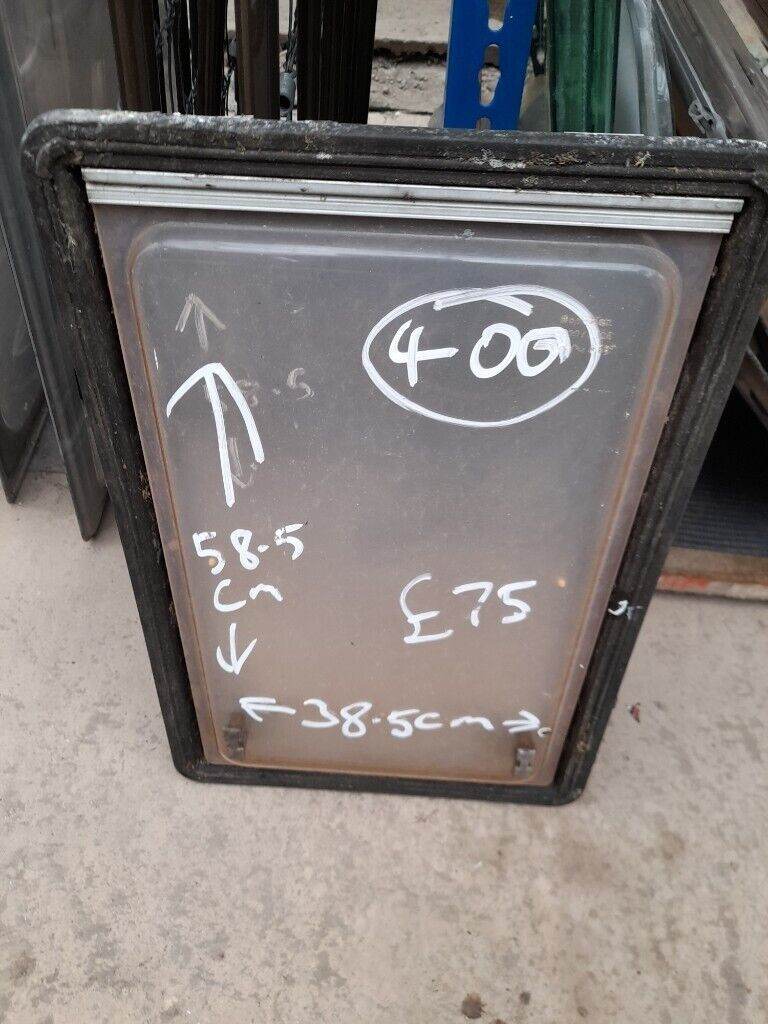 400
58.5
cm
£75
38.5cm